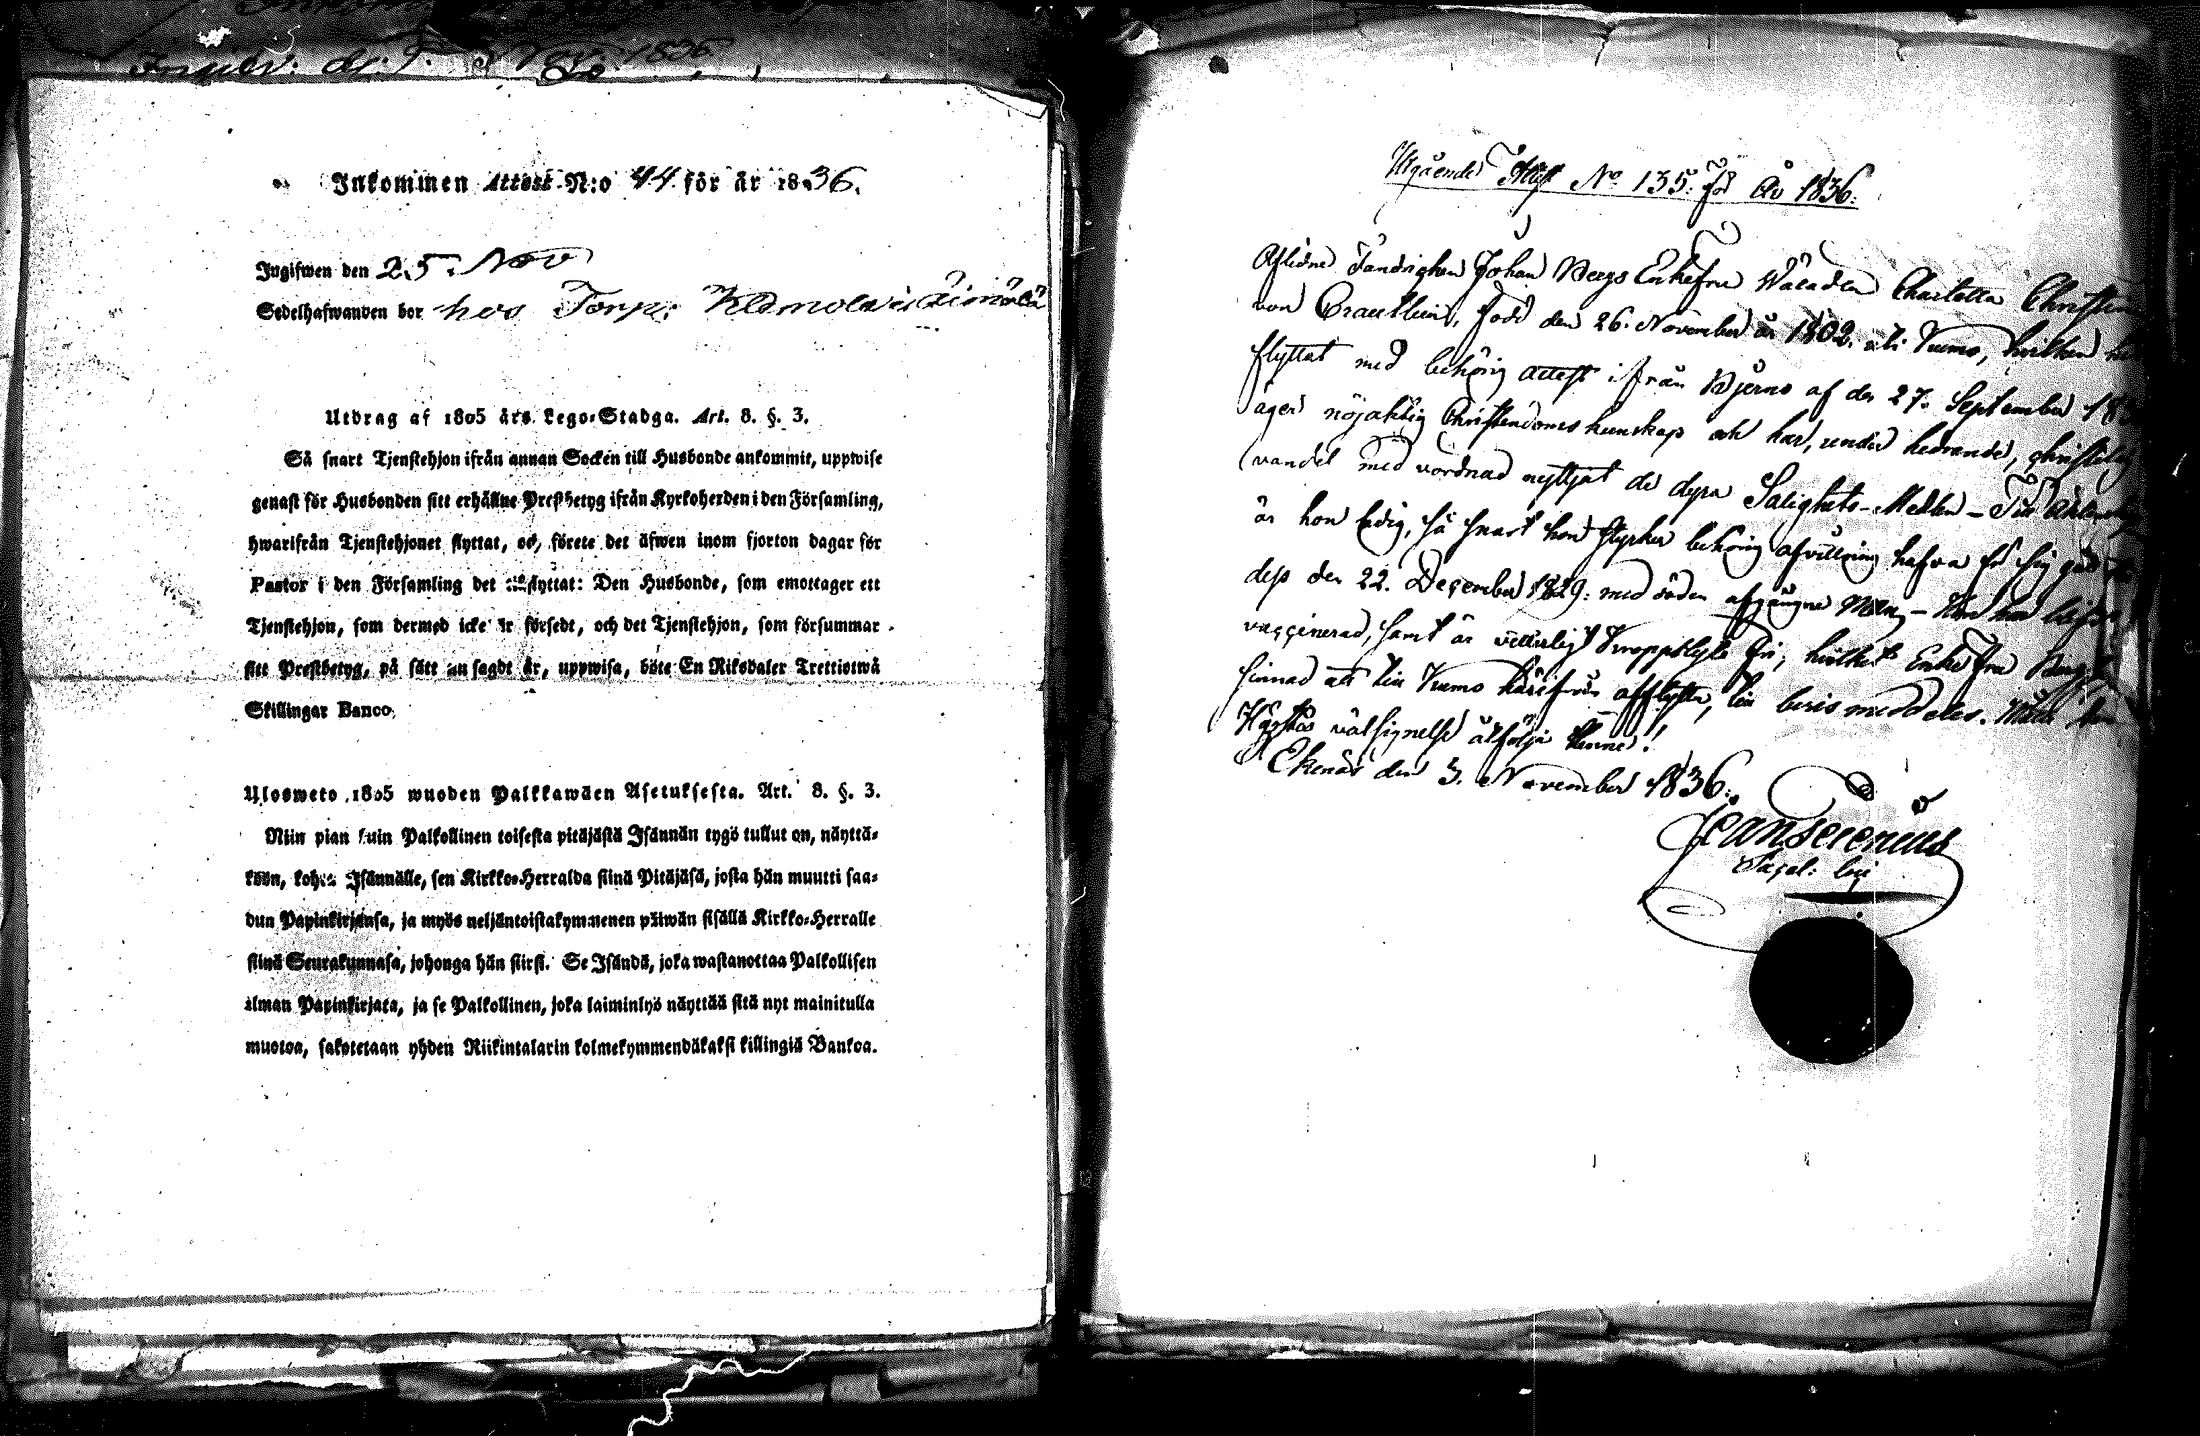 Ingifv: d. 3 Nov. 1836
Inkommen Attest N:o 44 för år 1836.
Ingifwen den 25. Nov
Sedelhafwanden bor hos Torp:
Utdrag af 1805 års Lego-Stadga. Art. 8. §. 3.
Så snart Tjenstehjon ifrån annan Socken till Husbonde ankommit, uppwise
genast för Husbonden sitt erhållne Prestbetyg ifrån Kyrkoherden i den Församling,
hwarifrån Tjenstehjonet flyttat, och förete det äfwen inom fjorton dagar för
Pastor i den Församling det flyttat: Den Husbonde, som emottager ett
Tjenstehjon, som dermed icke är försedt, och det Tjenstehjon, som försummar
sitt Prestbetyg, på sätt nu sagdt är, uppwisa, böte En Riksdaler Trettiotwå
Skillingar Banco.
Ulosweto 1805 wuoden Palkkawäen Asetuksesta. Art. 8. §. 3.
Niin pian kuin Palkollinen toisesta pitäjästä Isännän tygö tullut on, näyttä-
köön, kohta Isännälle, sen Kirkko-Herralda siinä Pitäjäsä, josta hän muutti saa-
dun Papinkirjansa, ja myös neljäntoistakymmenen päiwän sisällä Kirkko-Herralle
siinä Seurakunnasa, johonga hän siirsi. Se Isändä, joka wastanottaa Palkollisen
ilman Papinkirjata, ja se Palkollinen, joka laiminlyö näyttää sitä nyt mainitulla
muotoa, sakotetaan yhden Riikintalarin kolmekymmendäkaksi killingiä Bankoa.
Utgående Attest No 135. för År 1836.
Aflidne Fändrichen Johan Bergs Enkefru Charlotta Christina
von Brauthein, född den 26. November år 1802. uti Kumo, hvilken
flyttat med behörig attest ifrån Bjerno af den 27. September
äger nöjaktig Christendoms kunskap och har, under hedrande, christelig
vandel med vördnad nyttjat de dyra Salighets-Medlen – Till
är hon ledig, så snart hon styrker behörig afvittring hafva för sig
deß den 22. December 1829. med döden afgångne Man, – Hon har
vaccinerad, samt är vitterligt kroppslyte fri, hvilket Enkefru
sinnad att till Kumo härifrån afflytta, till bevis meddeles.
Högstas välsignelse åtfölja henne!
Ekenäs den 3. November 1836.
Jean Serenius
Sacel: loci